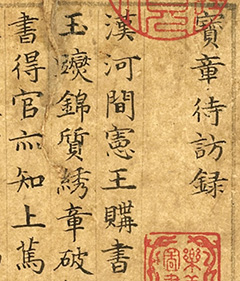 寶章待訪録
漢河間憲王購書
玉躞錦質綉章破
書得官亦知上篤